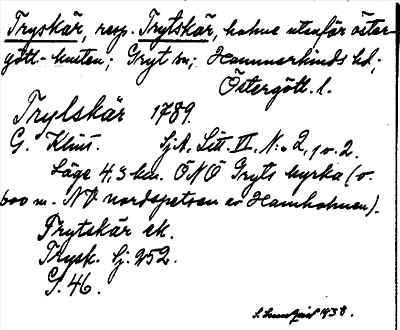 Tryskär, resp. Trytskär, holme utanför öster-
gött.-kusten; Gryt sn; Hammarkinds hd;
Östergötl. l.
Trylskär 1789.
G. Klint. Sj.A. Litt. VI, N:o 2, 1 o. 2.
Läge 4,3 km. ÖNÖ Gryts kyrka (o.
600 m. NV nordspetsen av Hamnholmen).
Trytskär ek.
Trysk. Sj. 252.
G. 46.
1938.